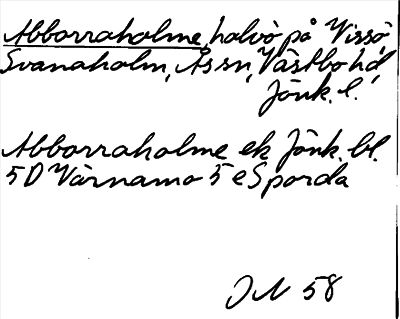 Abborraholme, halvö på Vissö,
Svanaholm, Ås sn, Västbo hd,
Jönk. l.
Abborraholme ek Jönk. bl.
5D Värnamo 5 e Sporda
JN 58